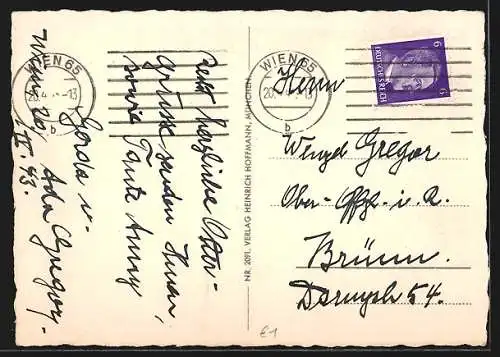 WIEN 65
20. 4. -13
b
WIEN 65
20. -13
b
DEUTSCHES REICH
6 6
Wien, 20. IV. 43.
Recht herzliche Oster-
grüsse senden Ihnen,
sowie Tante Anny
Gerda u.
Ada Gregor.
NR. 2091. VERLAG HEINRICH HOFFMANN, MÜNCHEN
Herrn
Wenzel Gregor
Ober-Offzl. i. R.
Brünn.
54.
€1